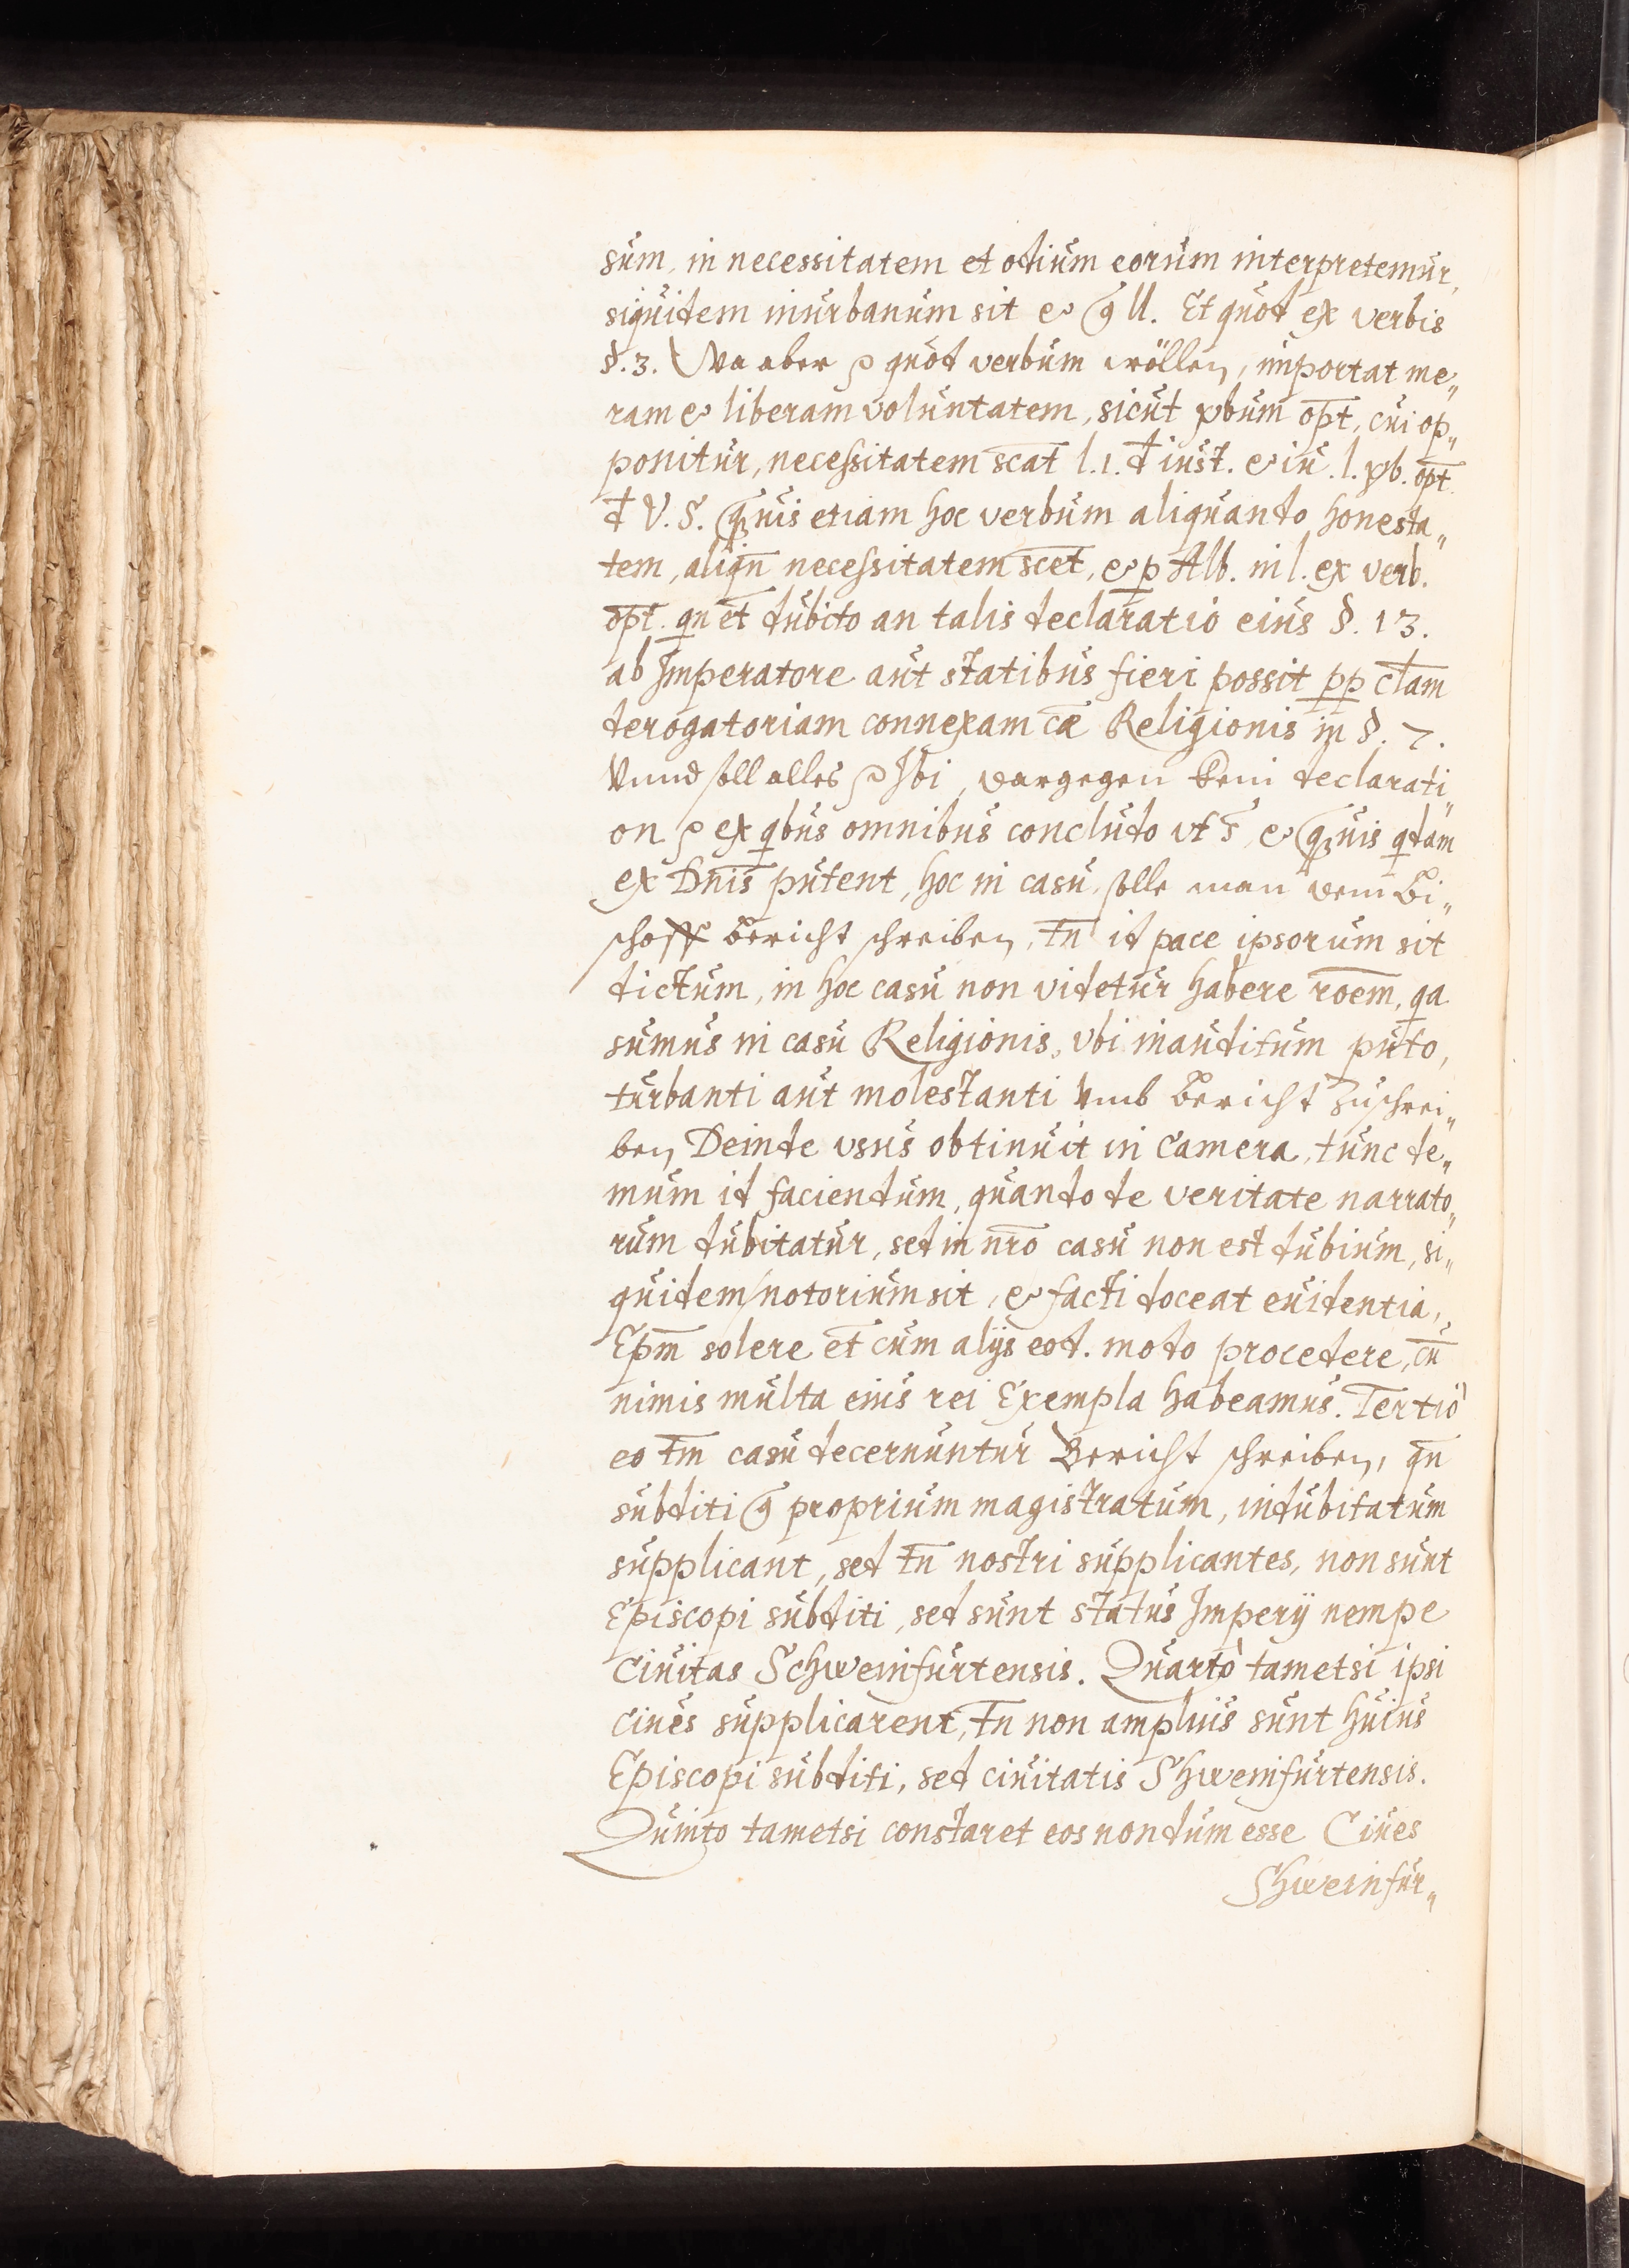 sum, in necessitatem et odium eorum interpretemur,
siquidem inurbanum sit & ll. Et quod ex verbis
§. 3. Wa aber quod verbum wöllen, importat me„
ram & liberam voluntatem, sicut vbum opt, cui op„
ponitur, necessitatem scat l. 1. d iust. & iu. l. vb. opt.
d V. S. quis etiam hoc verbum aliquando honesta„
tem, aliqn necessitatem scet, & p Alb. in l. ex verb.
opt. qn et dubito an talis declaratio eius §. 13.
ab Imperatore aut statibus fieri possit pp clam
derogatoriam connexam cæ Religionis in §. 7.
Vnnd soll alles Ibi, dargegen kein declarati„
on ex qbus omnibus concludo vt & quis qdam
ex Dnis putent, hoc in casu solle man dem Bi„
schoff bericht schreiben, tn id pace ipsorum sit
dictum, in hoc casu non videtur habere roem, qa
sumus in casu Religionis, vbi inauditum puto,
turbanti aut molestanti Vmb bericht zuschrei„
ben, Deinde vsus obtinuit in Camera, tunc de„
mum id faciendum, quando de veritate narrato„
rum dubitatur, sed in nro casu non est dubium, si„
quidem notorium sit, & facti doceat euidentia,
Epm solere et cum alijs eod. modo procedere, cu
nimis multa eius rei Exempla habeamus. Tertiò
eo tm casu decernuntur Bericht schreiben, qn
subditi proprium magistratum, indubitatum
supplicant, sed tn nostri supplicantes, non sunt
Episcopi subditi, sed sunt status Imperij nempe
Ciuitas Schweinfurtensis. Quartò tametsi ipsi
ciues supplicarent, tn non amplius sunt huius
Episcopi subditi, sed ciuitatis Shweinfurtensis.
Quinto tametsi constaret eos nondum esse Ciues
Shweinfur„